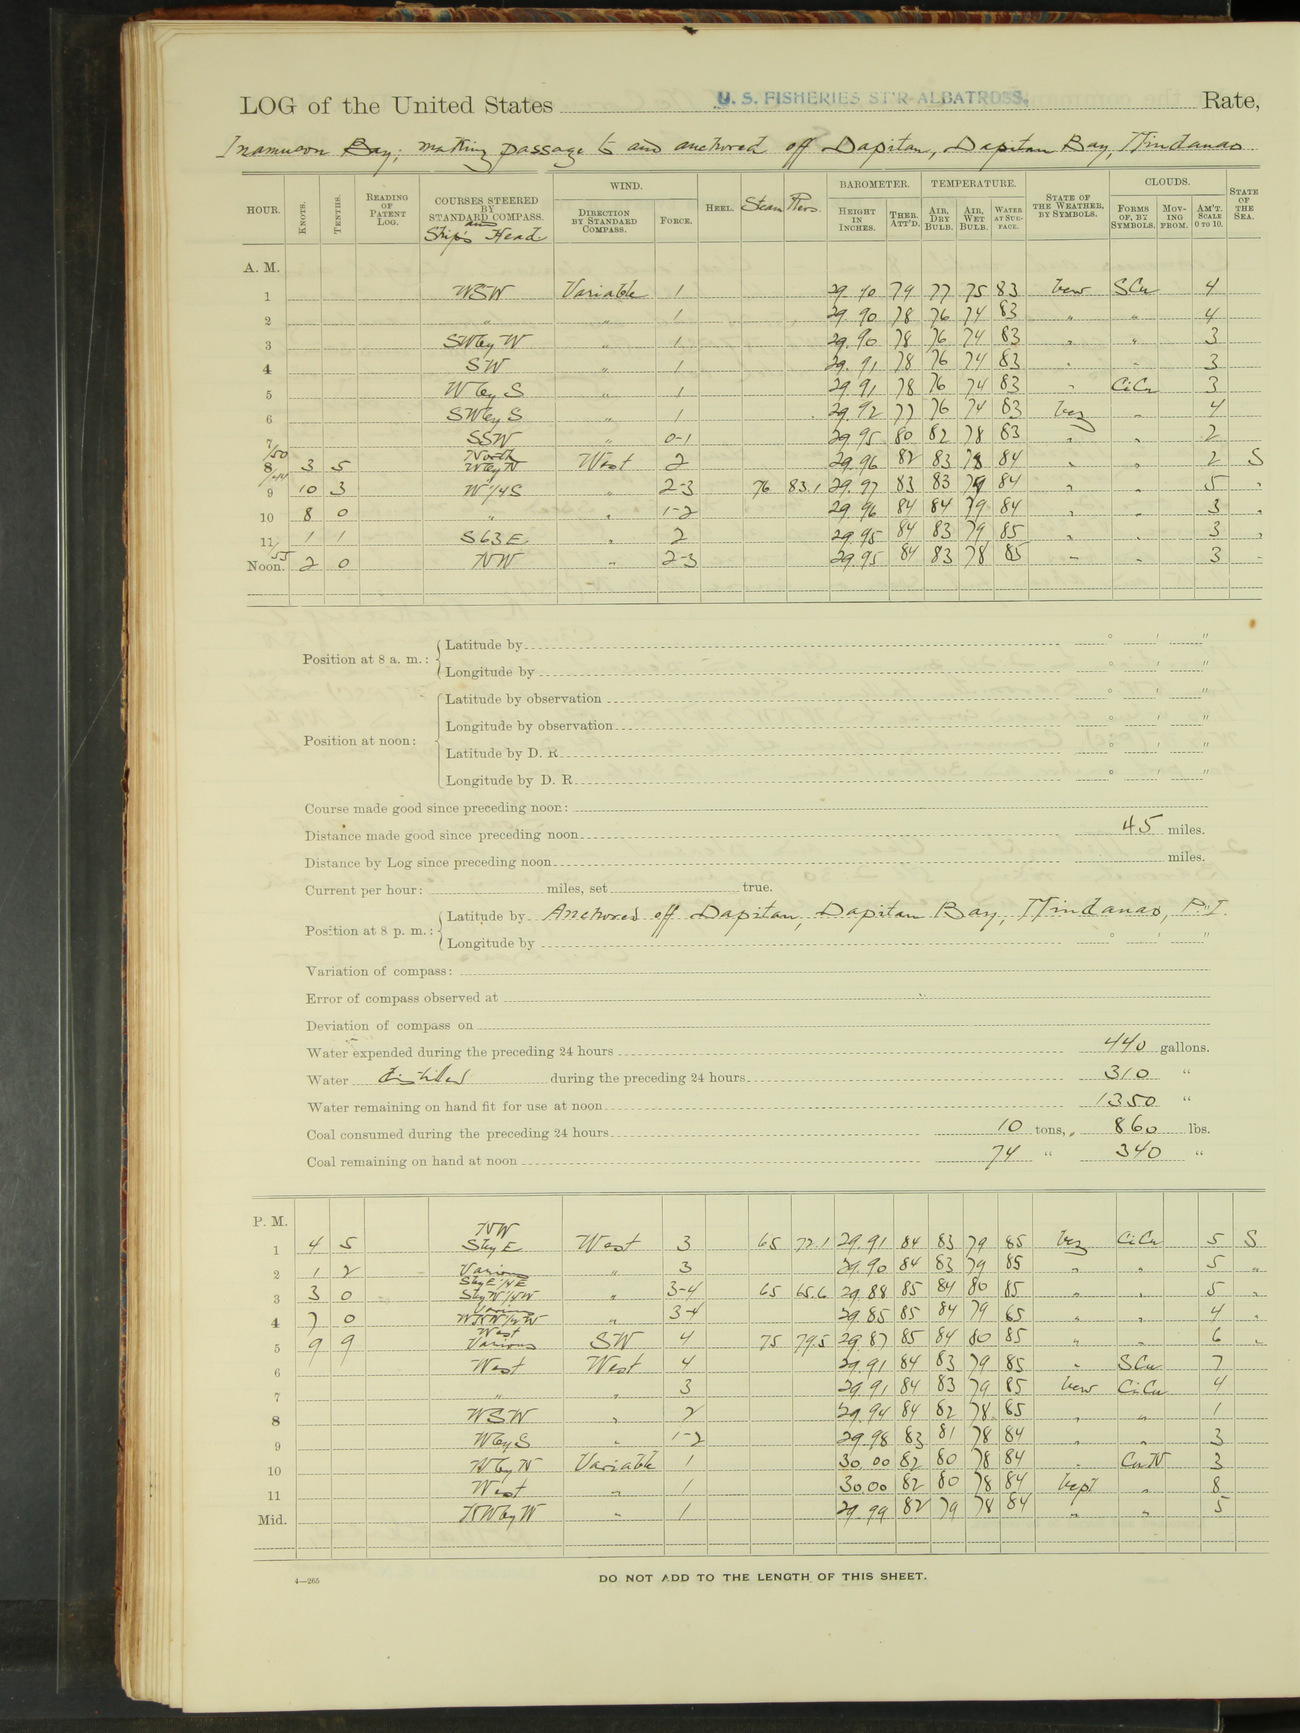 LOG of the United States U. S. FISHERIES ST'R ALBATROSS. Rate,
Bay; making passage to and anchored off Dapitan, Dapitan Bay, Mindanao
HOUR. KNOTS. TENTHS. READING OF PATENT LOG. COURSES STEERED BY STANDARD COMPASS. and Ship's Head WIND. DIRECTION BY STANDARD COMPASS. FORCE. HEEL. Steam Revs. BAROMETER. HEIGHT IN INCHES. THER. ATT'D. TEMPERATURE. AIR, DRY BULB. AIR, WET BULB. WATER AT SURFACE. STATE OF THE WEATHER, BY SYMBOLS. CLOUDS. FORMS OF, BY SYMBOLS. MOVING FROM. AM'T. SCALE 0 TO 10. STATE OF THE SEA.
A. M.
1 WSW Variable 1 29.90 79 77 75 83 bcw SCu 4
2 " " 1 29.90 78 76 74 83 " " 4
3 SW by W " 1 29.90 78 76 74 83 " " 3
4 SW " 1 29.91 78 76 74 83 " " 3
5 W by S " 1 29.91 78 76 74 83 " CiCu 3
6 SW by S " 1 29.92 77 76 74 83 bcz " 4
7 SSW " 0-1 29.95 80 82 78 83 " " 2
/50 8 3 5 North W by N West 2 29.96 82 83 78 84 " " 2 S
/44 9 10 3 W 1/4 S " 2-3 76 83.1 29.97 83 83 79 84 " " 5 "
10 8 0 " " 1-2 29.96 84 84 79 84 " " 3 "
11 1 1 S 63 E " 2 29.95 84 83 79 85 " " 3 "
/55 Noon. 2 0 NW " 2-3 29.95 84 83 78 85 " " 3 "
Position at 8 a. m.: Latitude by ° ' "
Longitude by ° ' "
Latitude by observation ° ' "
Longitude by observation ° ' "
Position at noon:
Latitude by D. R. ° ' "
Longitude by D. R. ° ' "
Course made good since preceding noon:
Distance made good since preceding noon 45 miles.
Distance by Log since preceding noon miles.
Current per hour: miles, set true.
Position at 8 p. m.: Latitude by Anchored off Dapitan, Dapitan Bay, Mindanao, P.I.
Longitude by ° ' "
Variation of compass:
Error of compass observed at
Deviation of compass on
Water expended during the preceding 24 hours 440 gallons.
Water distilled during the preceding 24 hours 310 "
Water remaining on hand fit for use at noon 1350 "
Coal consumed during the preceding 24 hours 10 tons, 860 lbs.
Coal remaining on hand at noon 74 " 340 "
P. M.
1 4 5 NW S by E West 3 65 72.1 29.91 84 83 79 85 bcz CiCu 5 S
2 1 2 Various " 3 29.90 84 83 79 85 " " 5 "
3 3 0 S by E 1/4 E S by W 1/4 W " 3-4 65 65.6 29.88 85 84 80 85 " " 5 "
4 7 0 Various WNW 1/4 W " 3-4 29.85 85 84 79 85 " " 4 "
5 9 9 West Various SW 4 75 79.5 29.87 85 84 80 85 " " 6 "
6 West West 4 29.91 84 83 79 85 " SCu 7
7 " " 3 29.91 84 83 79 85 bcw CiCu 4
8 WSW " 2 29.94 84 82 78 85 " " 1
9 W by S " 1-2 29.98 83 81 78 84 " " 3
10 W by N Variable 1 30.00 82 80 78 84 " CuN 3
11 West " 1 30.00 82 80 78 84 " 8
Mid. NW by W " 1 29.99 82 79 78 84 " " 5
4—265
DO NOT ADD TO THE LENGTH OF THIS SHEET.